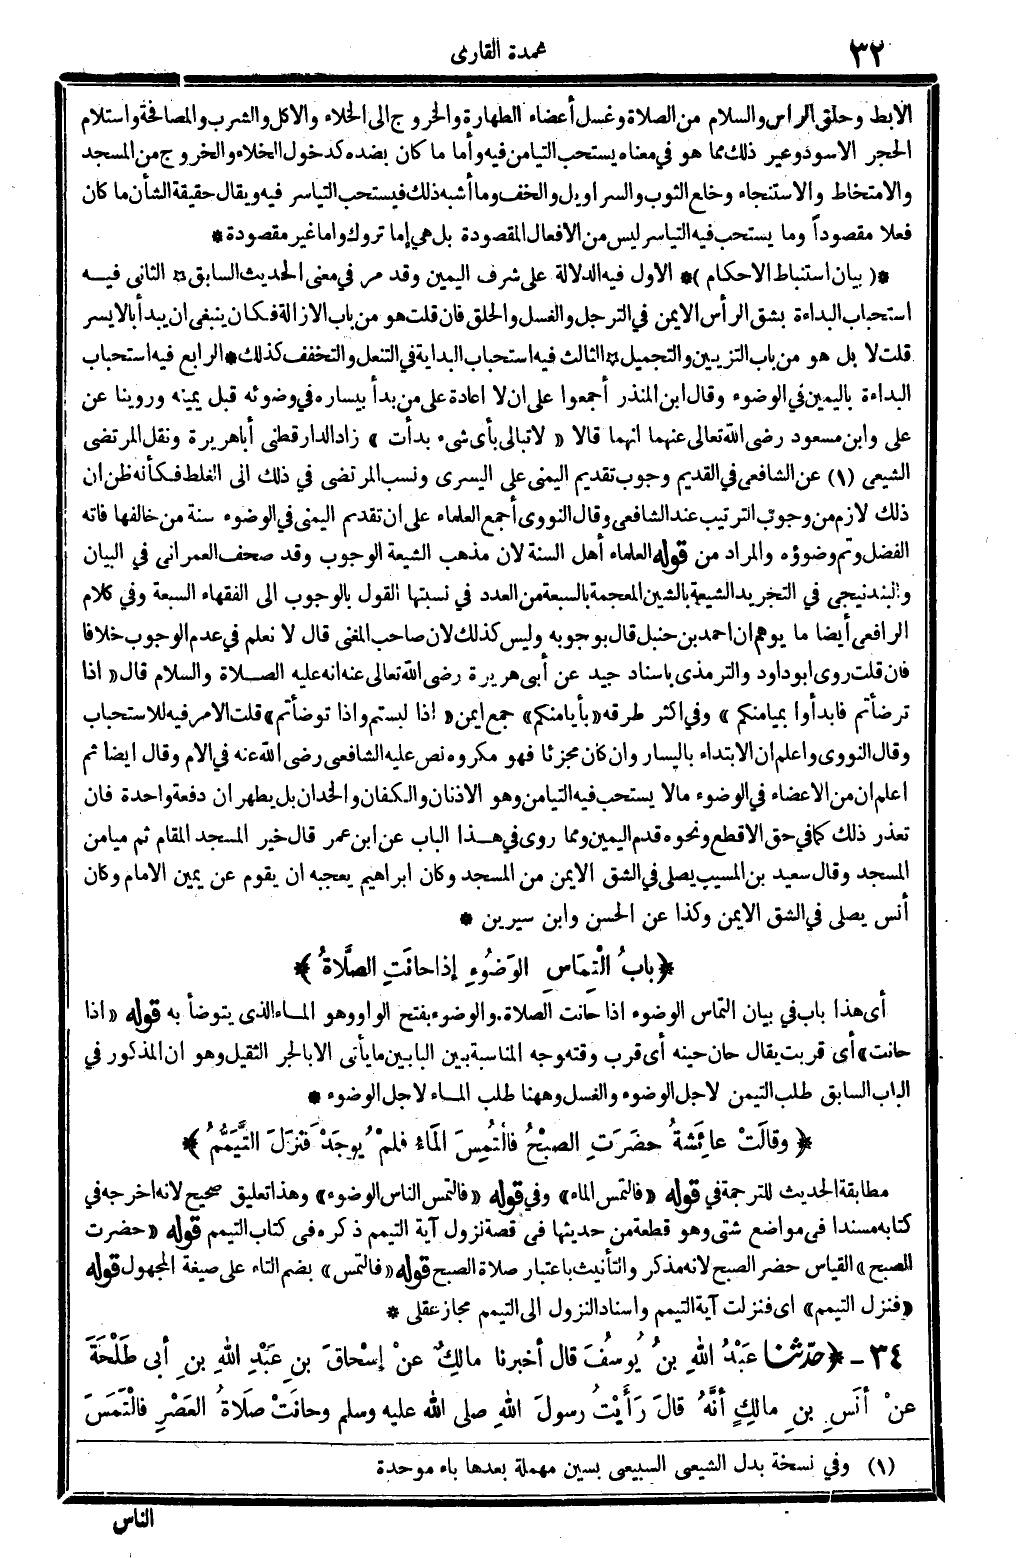 ٣٢
عمدة القارى
الابط وحلق الرأس والسلام من الصلاة وغسل أعضاء الطهارة والخروج الى الخلاء والاكل والشرب والمصافحة واستلام
الحجر الاسود وغير ذلك مما هو في معناه يستحب التيامن فيه وأما ما كان بضده كدخول الخلاء والخروج من المسجد
والامتخاط والاستنجاء وخلع الثوب والسراويل والخف وما أشبه ذلك فيستحب التياسر فيه ويقال حقيقة الشأن ما كان
فعلا مقصوداً وما يستحب فيه التياسر ليس من الافعال المقصودة بل هي إما تروك واما غير مقصودة *
*( بيان استنباط الاحكام )* الاول فيه الدلالة على شرف اليمين وقد مر في معنى الحديث السابق * الثاني فيه
استحباب البداءة بشق الرأس الايمن في الترجل والغسل والحلق فان قلت هو من باب الازالة فكان ينبغى ان يبدأ بالايسر
قلت لا بل هو من باب التزيين والتجميل * الثالث فيه استحباب البداية في التنعل والتخفف كذلك * الرابع فيه استحباب
البداءة باليمين في الوضوء وقال ابن المنذر أجمعوا على ان لا اعادة على من بدأ بيساره في وضوئه قبل يمينه وروينا عن
على وابن مسعود رضى الله تعالى عنهما انهما قالا « لا تبالى بأى شىء بدأت » زاد الدارقطنى أباهريرة ونقل المرتضى
الشيعى (١) عن الشافعى في القديم وجوب تقديم اليمنى على اليسرى ونسب المرتضى في ذلك الى الغلط فكأنه ظن ان
ذلك لازم من وجوب الترتيب عند الشافعى وقال النووى أجمع العلماء على ان تقديم اليمنى في الوضوء سنة من خالفها فاته
الفضل وتم وضوؤه والمراد من قوله العلماء أهل السنة لان مذهب الشيعة الوجوب وقد صحف العمرانى في البيان
والبندنيجى في التجريد الشيعة بالشين المعجمة بالسبعة من العدد في نسبتها القول بالوجوب الى الفقهاء السبعة وفي كلام
الرافعى أيضا ما يوهم ان احمد بن حنبل قال بوجوبه وليس كذلك لان صاحب المغنى قال لا نعلم في عدم الوجوب خلافا
فان قلت روى ابو داود والترمذى باسناد جيد عن أبى هريرة رضى الله تعالى عنه انه عليه الصلاة والسلام قال « اذا
توضأتم فابدأوا بميامنكم » وفي اكثر طرقه « بأيامنكم » جمع ايمن « اذا لبستم واذا توضأتم » قلت الامر فيه للاستحباب
وقال النووى واعلم ان الابتداء باليسار وان كان مجزئا فهو مكروه نص عليه الشافعى رضى الله عنه في الام وقال ايضا ثم
اعلم ان من الاعضاء في الوضوء مالا يستحب فيه التيامن وهو الاذنان والكفان والخدان بل يطهران دفعة واحدة فان
تعذر ذلك كما في حق الاقطع ونحوه قدم اليمين ومما روى في هذا الباب عن ابن عمر قال خير المسجد المقام ثم ميامن
المسجد وقال سعيد بن المسيب يصلى في الشق الايمن من المسجد وكان ابراهيم يعجبه ان يقوم عن يمين الامام وكان
أنس يصلى في الشق الايمن وكذا عن الحسن وابن سيرين *
*﴿ بابُ الْتِمَاسِ الوَضُوءِ إِذا حانَتِ الصَّلَاةُ ﴾*
أى هذا باب في بيان التماس الوضوء اذا حانت الصلاة. والوضوء بفتح الواو وهو الماء الذى يتوضأ به قوله « اذا
حانت » أى قربت يقال حان حينه أى قرب وقته وجه المناسبة بين البابين ما يأتى الا بالجر الثقيل وهو ان المذكور في
الباب السابق طلب التيمن لاجل الوضوء والغسل وههنا طلب الماء لاجل الوضوء *
*﴿ وقالَتْ عائِشةُ حضَرَتِ الصبْحُ فالْتُمِسَ المَاءُ فلمْ يُوجَدْ فَنزَلَ التَّيَمُّمُ ﴾*
مطابقة الحديث للترجمة في قوله « فالتمس الماء » وفي قوله « فالتمس الناس الوضوء » وهذا تعليق صحيح لانه اخرجه في
كتابه مسندا في مواضع شتى وهو قطعة من حديثها فى قصة نزول آية التيمم ذكره فى كتاب التيمم قوله « حضرت
الصبح » القياس حضر الصبح لانه مذكر والتأنيث باعتبار صلاة الصبح قوله « فالتمس » بضم التاء على صيغة المجهول قوله
« فنزل التيمم » اى فنزلت آية التيمم واسناد النزول الى التيمم مجاز عقلى *
٣٤ - ﴿ حدّثنا عَبْدُ اللهِ بنُ يُوسُفَ قال أخبرنا مالِكٌ عنْ إسْحاقَ بنِ عَبْدِ اللهِ بنِ أبى طَلْحَةَ
عنْ أنَسِ بنِ مالِكٍ أنَّهُ قالَ رَأَيْتُ رسولَ اللهِ صلى الله عليه وسلم وحانَتْ صَلَاةُ العَصْرِ فالْتَمَسَ
(١) وفي نسخة بدل الشيعى السبيعى بسين مهملة بعدها باء موحدة
الناس